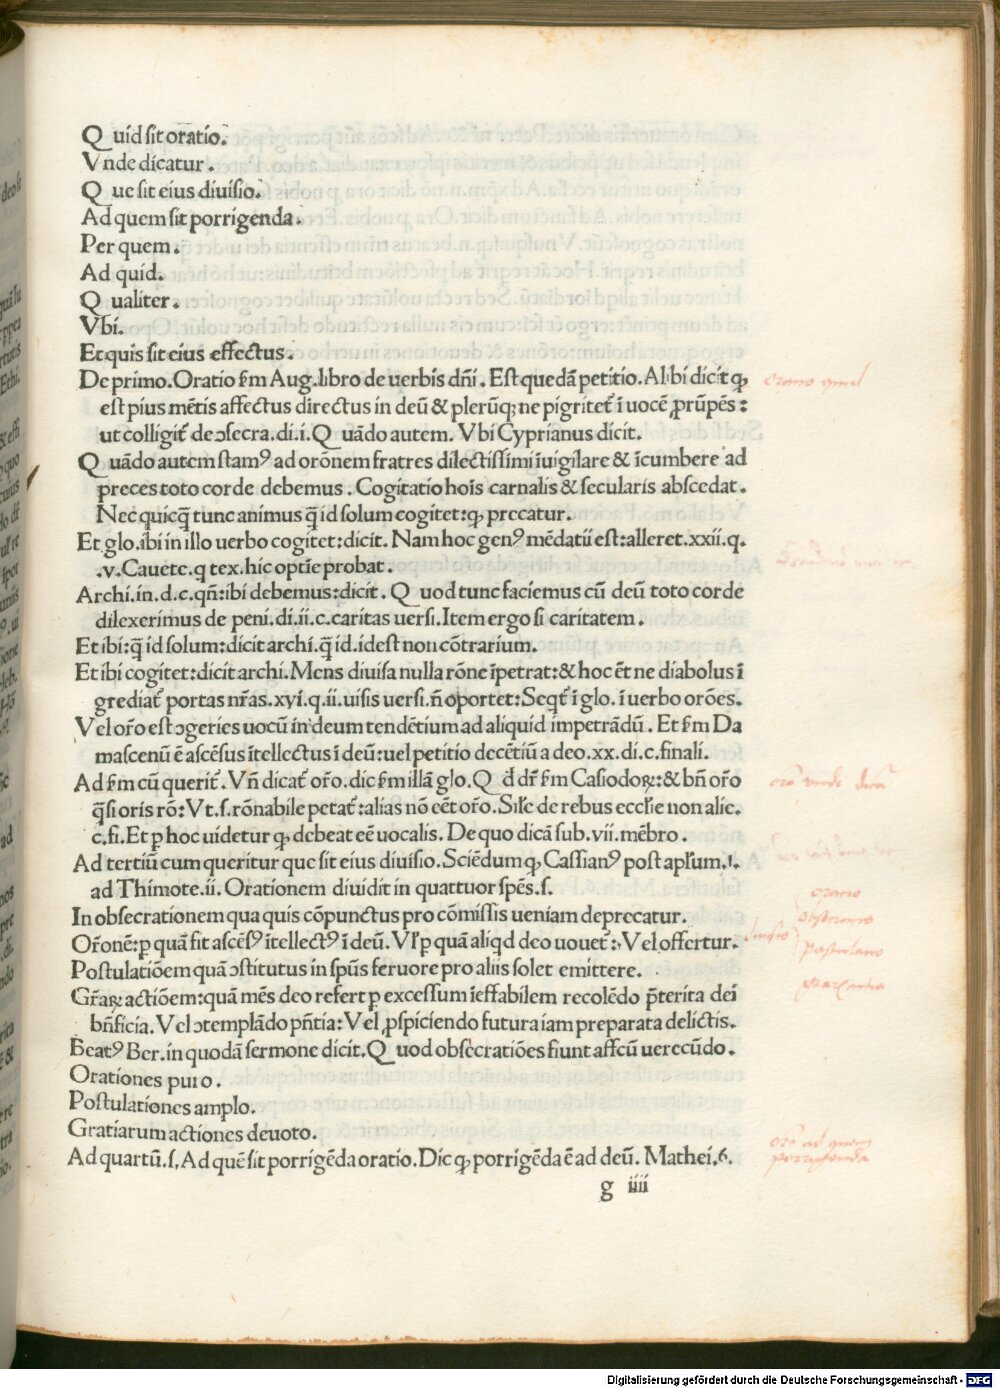 Q uid sit oratio.
Vnde dicatur.
Q ue sit eius diuisio.
Ad quem sit porrigenda.
Per quem.
Ad quid.
Q ualiter.
Vbi.
Et quis sit eius effectus.
De primo. Oratio ẜm Aug. libro de uerbis dñi. Est quedā petitio. Alibi dicit ꝙ
est pius mētis affectus directus in deū & plerūqꝫ ne pigritet᷑ ī uocē ꝓrūpēs:
ut colligit᷑ de ↄsecra.di.i. Q uādo autem. Vbi Cyprianus dicit.
Q uādo autem stamꝰ ad orōnem fratres dilectissimi īuigilare & īcumbere ad
preces toto corde debemus. Cogitatio hoīs carnalis & secularis abscedat.
Nec quicq̄ tunc animus q̄ id solum cogitet: ꝙ precatur.
Et glo. ibi in illo uerbo cogitet: dicit. Nam hoc genꝰ mēdatii est: alleret.xxii.q.
.v. Cauete. q tex. hic optīe probat.
Archi. in.d.c.qñ: ibi debemus: dicit. Q uod tunc faciemus cū deū toto corde
dilexerimus de peni.di.ii.c. caritas uersi. Item ergo si caritatem.
Et ibi: q̄ id solum: dicit archi. q̄ id. idest non cōtrarium.
Et ibi cogitet: dicit archi. Mens diuisa nulla rōne īpetrat: & hoc ēt ne diabolus ī
grediat᷑ portas nr̄as.xvi.q.ii. uisis uersi. ñ oportet: Seqt᷑ ī glo. ī uerbo orōes.
Vel or̄o est ↄgeries uocū in deum tendētium ad aliquid impetrādū. Et ẜm Da
mascenū ē ascēsus ītellectus ī deū: uel petitio decētiū a deo.xx.di.c. finali.
Ad ẜm cū querit᷑. Vñ dicat᷑ or̄o. dic ẜm illā glo. Q đ dr̄ ẜm Casiodoꝝ: & bñ or̄o
q̄si oris rō: Vt.s. rōnabile petat᷑: alias nō eēt or̄o. Sil̄e de rebus eccl̄ie non alie.
c.fi. Et ꝑ hoc uidetur ꝙ debeat eē uocalis. De quo dicā sub.vii. mēbro.
Ad tertiū cum queritur que sit eius diuisio. Sciēdum ꝙ Cassianꝰ post apl̄um.1.
ad Thimote.ii. Orationem diuidit in quattuor spēs.s.
In obsecrationem qua quis cōpunctus pro cōmissis ueniam deprecatur.
Or̄onē: ꝑ quā fit ascēsꝰ ītellectꝰ ī deū. Vl̄ ꝑ quā aliqd deo uouet᷑: Vel offertur.
Postulatiōem quā ↄstitutus in spūs feruore pro aliis solet emittere.
Gr̄aꝝ actiōem: quā mēs deo refert ꝑ excessum īeffabilem recolēdo p̄terita dei
bñficia. Vel ↄtemplādo pñtia: Vel ꝓspiciendo futura iam preparata delictis.
Beatꝰ Ber. in quodā sermone dicit. Q uod obsecratiōes fiunt affcū uerecūdo.
Orationes puro.
Postulationes amplo.
Gratiarum actiones deuoto.
Ad quartū.s, Ad quē sit porrigēda oratio. Dic ꝙ porrigēda ē ad deū. Mathei.6.
g iiii
oratio
obsecratio
diuisio
postulatio
oro ad quem
porrigenda
Digitalisierung gefördert durch die Deutsche Forschungsgemeinschaft - DFG